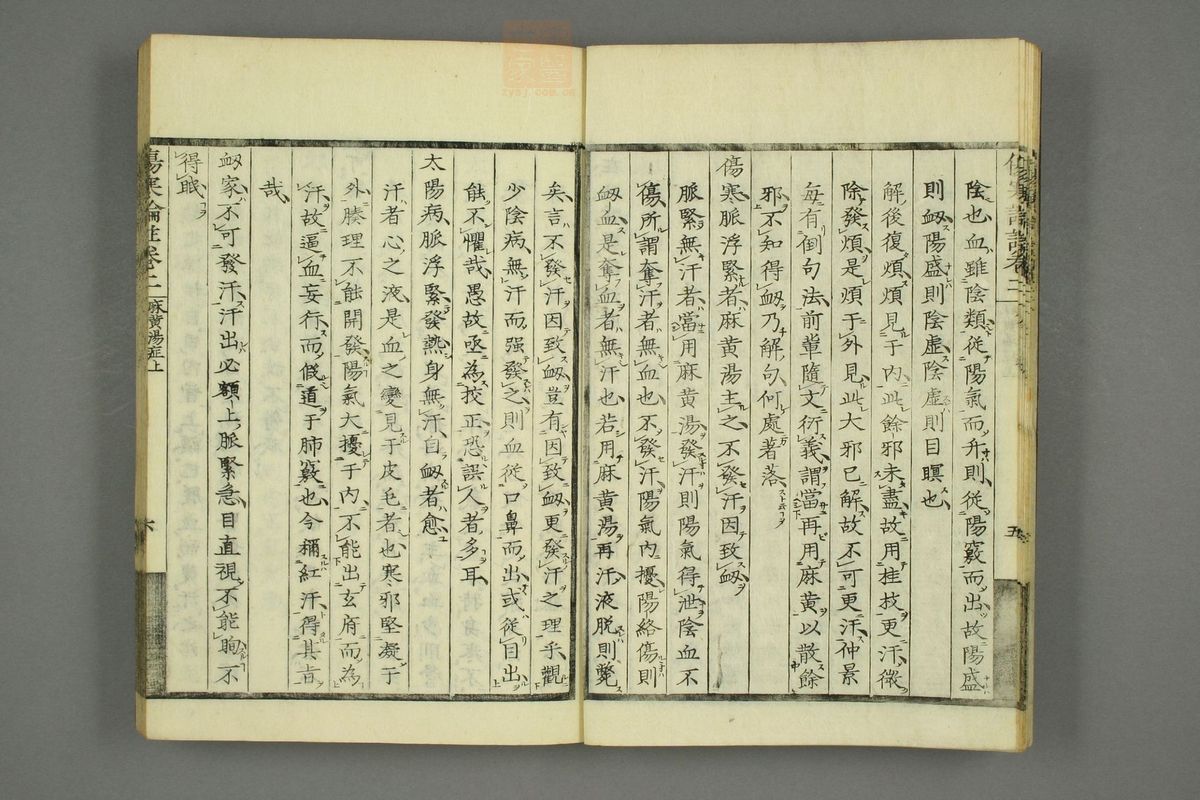 陰也血雖陰類從陽氣而升則從陽竅而出故陽盛
則衂陽盛則陰虛陰虛則目瞑也
解後復煩煩見于內此餘邪未盡故用桂枝更汗微
除發煩是煩于外見此大邪已解故不可更汗仲景
每有倒句法前輩隨文衍義謂當再用麻黃以散餘
邪不知得衂乃解句何處著落
傷寒脈浮緊者麻黃湯主之不發汗因致衂
脈緊無汗者當用麻黃湯發汗則陽氣得泄陰血不
傷所謂奪汗者無血也不發汗陽氣內擾陽絡傷則
衂血是奪血者無汗也若用麻黃湯再汗液脫則斃
五
矣言不發汗因致衂豈有因致衂更發汗之理乎觀
少陰病無汗而强發之則血從口鼻而出或從目出
能不懼哉愚故亟為挍正恐誤人者多耳
太陽病脈浮緊發熱身無汗自衂者愈
汗者心之液是血之變見于皮毛者也寒邪堅凝于
外腠理不能開發陽氣大擾于內不能出玄府而為
汗故逼血妄行而假道于肺竅也今稱紅汗得其旨
哉
衂家不可發汗汗出必額上脈緊急目直視不能眴不
得眠
傷寒論註卷二 麻黃湯症上 六
zysj.com.cn